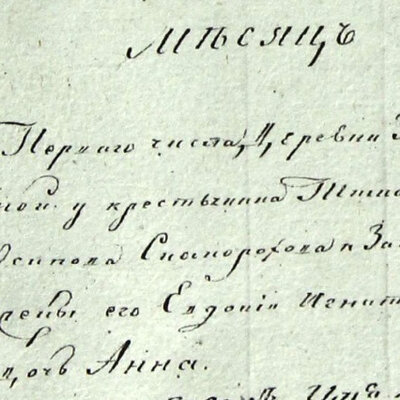 Мѣсяцъ
Перваго числа, Деревни
ной у крестьянина
осипова Скоморохова и За
жены его Евдокіи Игнат
дочь Анна.